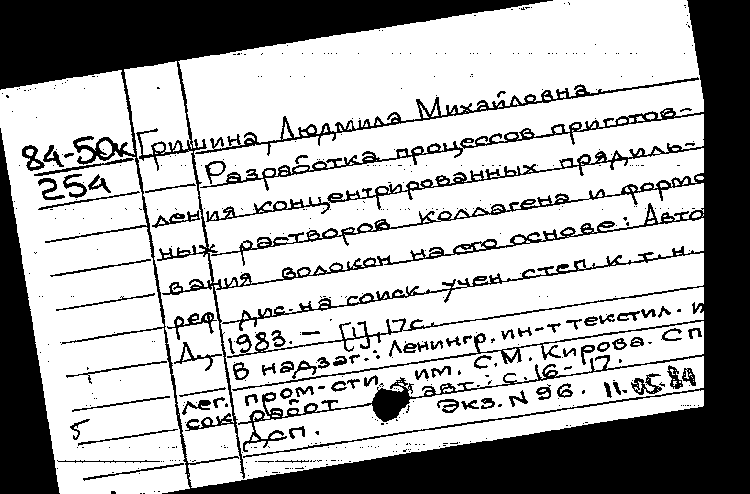 84-50к
254
Гришина, Людмила Михайловна.
Разработка процессов приготов-
ления концентрированных прядиль-
ных растворов коллагена и формо
вания волокон на его основе: Авто
реф. дис. на соиск. учен. степ. к. т. н.
Л., 1983. — [1], 17 с.
В надзаг.: Ленингр. ин-т текстил. и
лег. пром-сти им. С.М. Кирова. Сп
сок работ авт.: с. 16-17.
Экз. N 96. 11.05.84
ДСП.
5